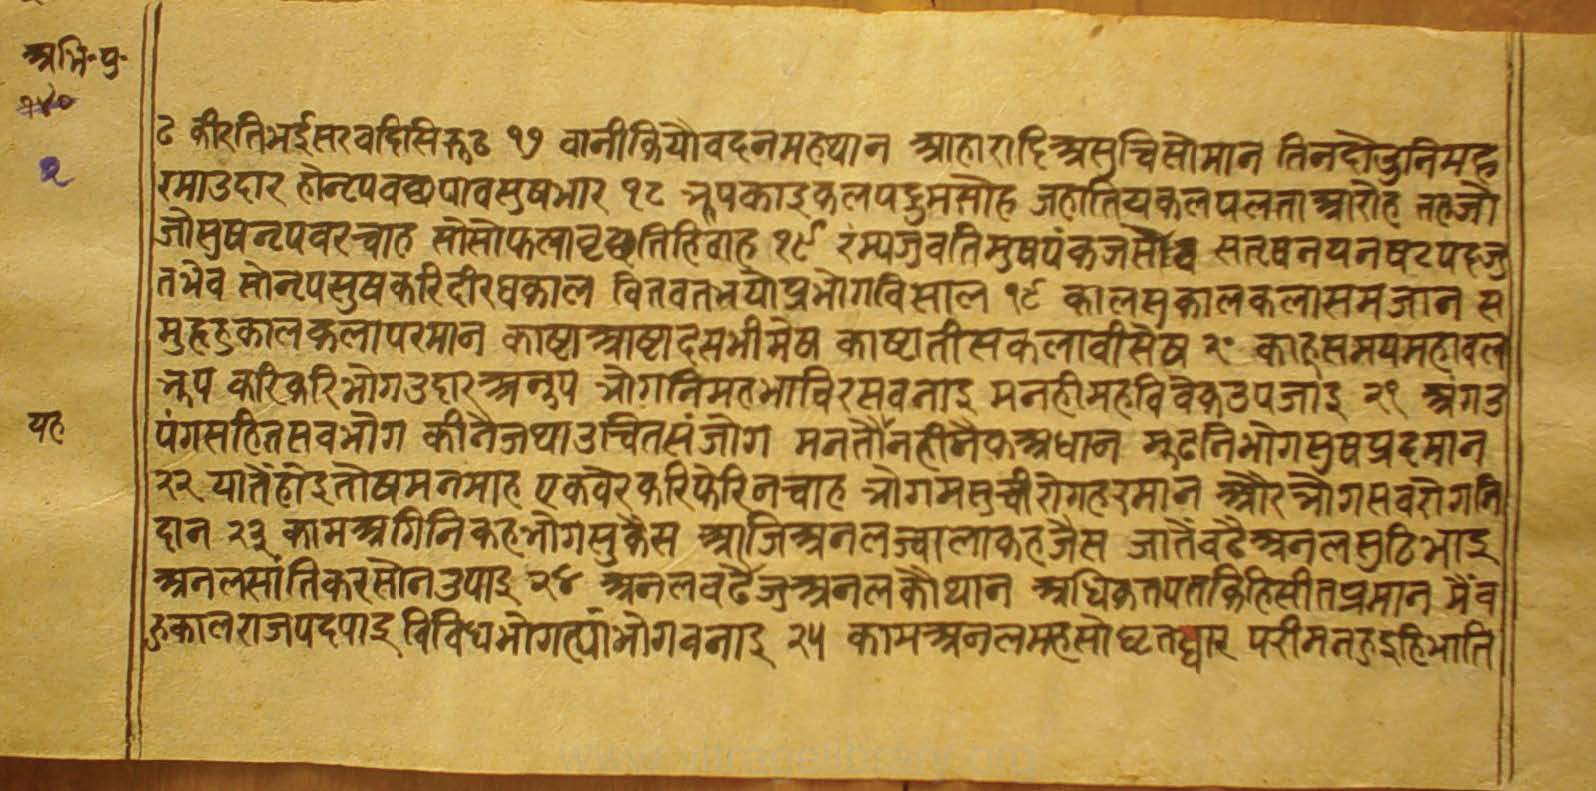 अभि॰पु॰
१४०
२
ट कीरति भई सरवदिसि कूट १७ वानी कियौ वदनमहथान आहारादि असुचि सोमान तिन दोउनिमह
रमाउदार हौ नृपवछपाव सुषभार १८ नृपकाइ कलपद्रुमसौह जहातिय कलपलताआरोह तह जो
जो सुष नृपवर चाह सोसो फल वृछतिहिवाह १९ रंम्यजुवति मुषपंकज सतृष नयन षटपदजु
तभेव सो नृप सुष करि दीरघकाल वितवतभयो प्रभोग विसाल १९ काल सुकालकला समजान स
मुहठुकाल कला परमान काष्टा आष्टादस भीमेष काष्टा तीस कला वीसेष २० काहूसमय महावल
नृप करिकरि भोग उदार अनुप भोगनिमह भावि रसवनाइ मनहीमह विवेक उपजाइ २१ अंगउ
पंग सहित सवभोग कीनै जथा उचित संजोग मन तौ नही नैक अधान मूढनि भोग सुषप्रदमान
यह
२२ यातै होइ तोष मनमाह एकवेर करि फेरि न चाह भोगमसुची रोगहरमान और भोग सवरोगनि
दान २३ काम अगिनि कह भोग सुकैस आजि अनल ज्वाला कह जैस जातै वढै अनल सुठिभाइ
अनल सांतिकर सो न उपाइ २४ अनल वढै जु अनल कौ थान अधिक तपत किहि सीत प्रमान मैं व
हुकाल राजपद पाइ विविध भोग त्यौ भोग वनाइ २५ काम अनल मह सो घृत धार परी मनहु इहि भाति
www.jinragelibrary.org